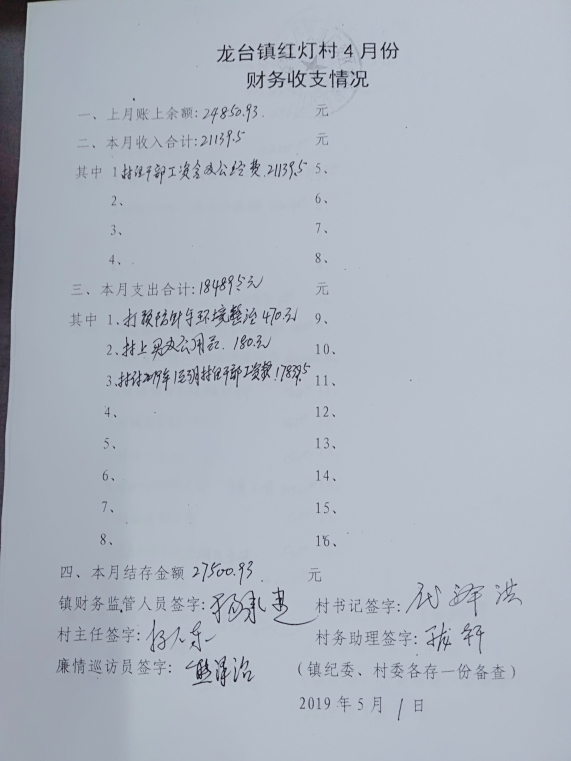 龙台镇红灯村4月份
财务收支情况
一、上月账上余额:24850.93 元
二、本月收入合计:21139.5 元
其中 1、村组干部工资含办公经费.21139.5 5、
2、 6、
3、 7、
4、 8、
三、本月支出合计:18489.5元 元
其中 1、打预防针守环境整治470.元 9、
2、村上买办公用品.180.元 10、
3、村付2019年1至3月村组干部工资款.17839.5 11、
4、 12、
5、 13、
6、 14、
7、 15、
8、 16、
四、本月结存金额 27500.93 元
镇财务监管人员签字: 村书记签字:
村主任签字: 村务助理签字:
廉情巡访员签字: 熊泽治 (镇纪委、村委各存一份备查)
2019年5月1日